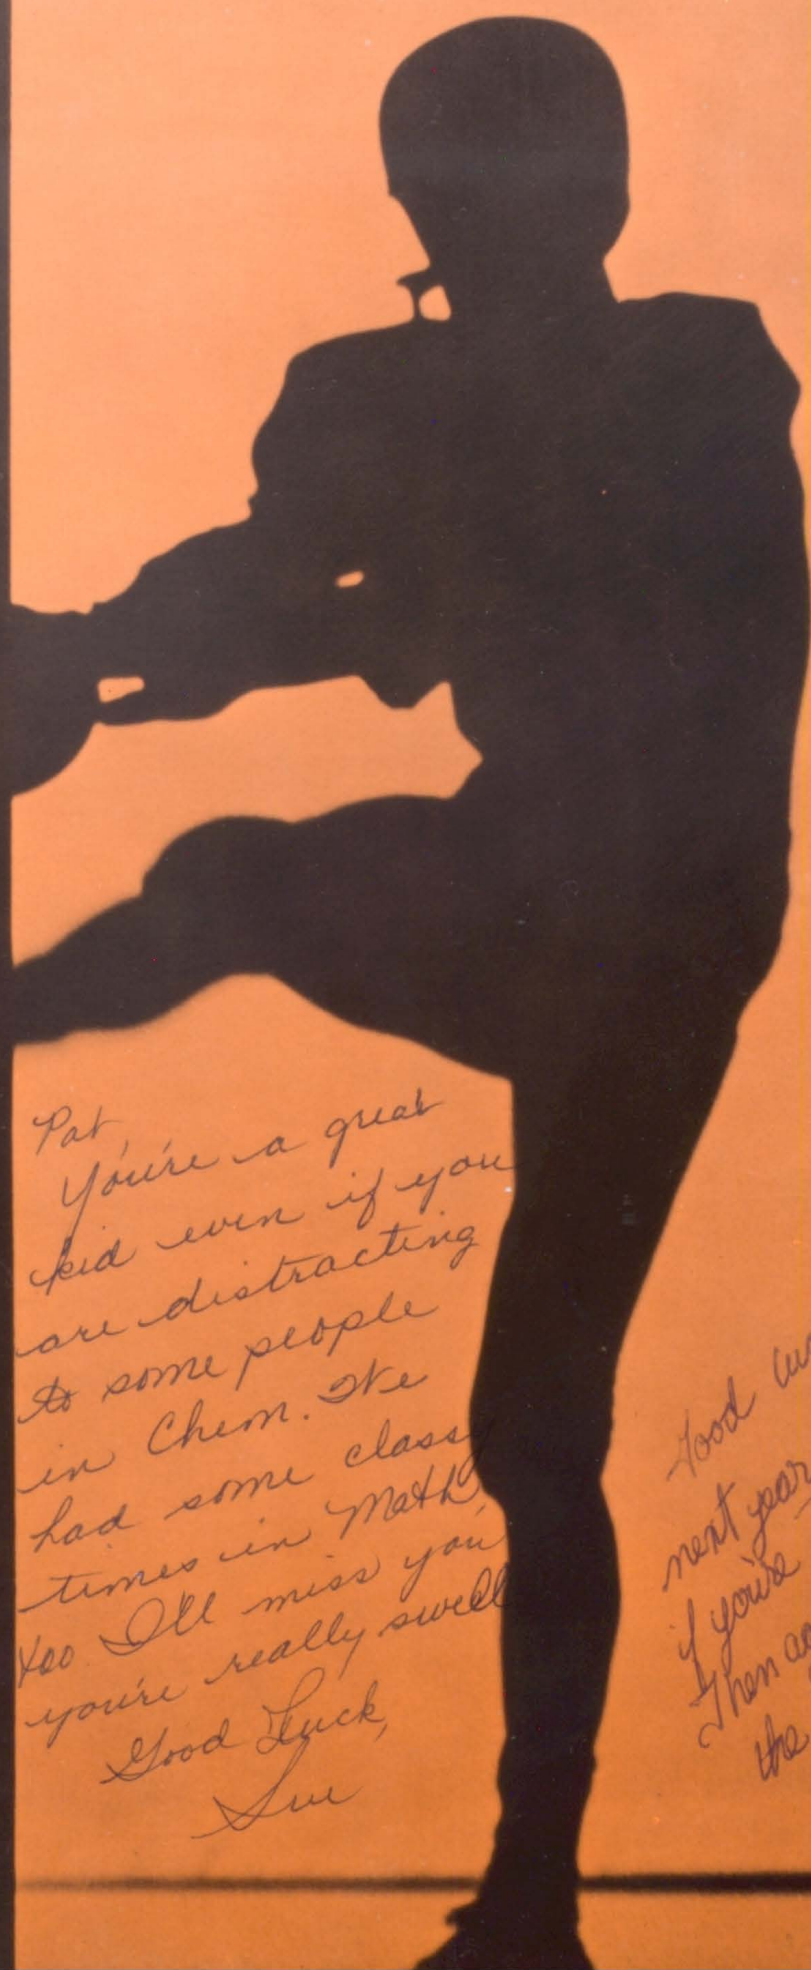 Pat,
You're a great
kid even if you
are distracting
to some people
in Chem. We
had some classy
times in Math,
too I'll miss you
you're really swell
Good Luck,
Sue
Good
next year
if you're
Then
the